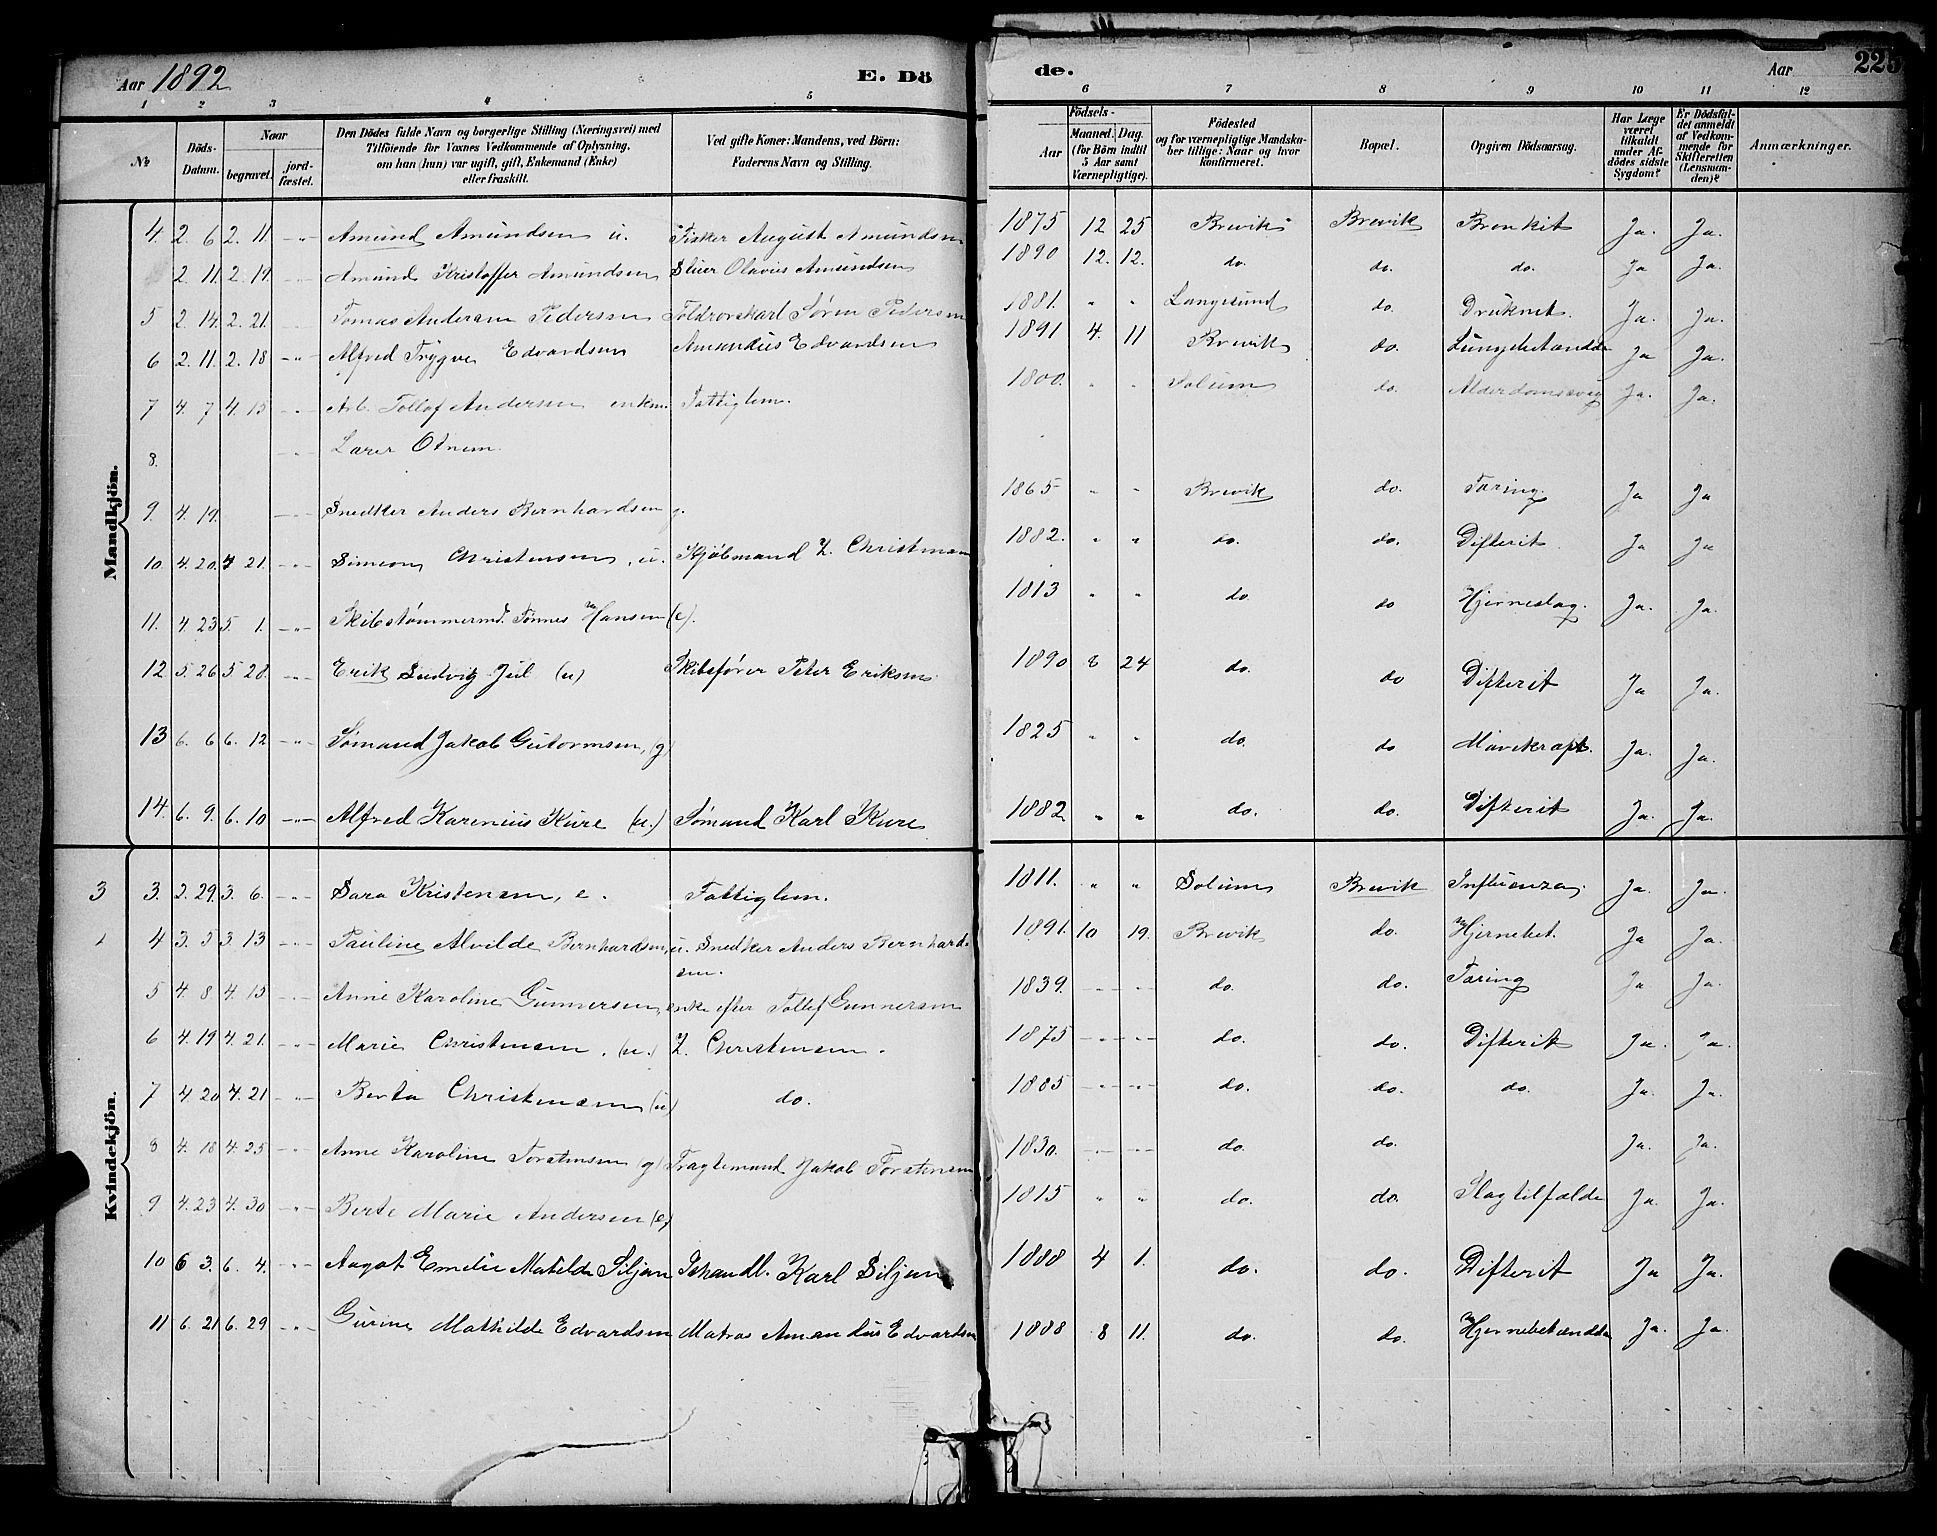 Aar 1892
E. Dö
de.
Aar
225
1 2 3 4 5 6 7 8 9 10 11 12
No
Döds-Datum.
Naar
begravet.
jord-fæstet.
Den Dödes fulde Navn og borgerlige Stilling (Næringsvei) med
Tilföiende for Voxnes Vedkommende af Oplysning,
om han (hun) var ugift, gift, Enkemand (Enke)
eller fraskilt.
Ved gifte Koner: Mandens, ved Börn:
Faderens Navn og Stilling.
Födsels-
Aar
Maaned. Dag.
(for Börn indtil
5 Aar samt
Værnepligtige).
Födested
og for værnepligtige Mandska-
ber tillige: Naar og hvor
konfirmeret.
Bopæl.
Opgiven Dödsaarsag.
Har Læge
været
tilkaldt
under Af-
dödes sidste
Sygdom?
Er Dödsfal-
det anmeldt
af Vedkom-
mende for
Skifteretten
(Lensman-
den)?
Anmærkninger.
Mandkjön.
4. 2. 6 2. 11. -"- Amund Amundsen u. Fisker August Amundsen 1875 12 25 Brevik Brevik Bronkit Ja. Ja.
2. 11. 2. 14. -"- Amund Kristoffer Amundsen Sliur Olavius Amundsen 1890 12. 12. do. do. do. Ja Ja.
5 2. 14. 2. 21. Tomas Andersen Pedersen Toldrorskarl Søren Pedersen 1881. " " Langesund do. Druknet. Ja. Ja.
6 2. 11. 2. 18 -"- Alfred Trygve Edvardsen Amandus Edvardsen 1891 4. 11 Brevik do. Lungebetændde Ja Ja.
7 4. 7 4. 15 -"- Arb. Tollof Andersen enkm. Fattiglem. 1800. " " Solum do. Alderdomssvag Ja. Ja.
8. -"- Lærer Otnem.
9. 4. 19. -"- Snedker Anders Bernhardsen g. 1865 " " Brevik do. Tæring. Ja Ja
10. 4. 20. 4 21. -"- Simeon Christensen, u. Kjøbmand Z. Christensen 1882. " " do. do. Difterit. Ja Ja
11. 4. 23 5. 1. -"- Skibstømmermd. Tønnes Hansen (e). 1813 " " do. do Hjerneslag. Ja. Ja.
12. 5. 26 5 28. -"- Erik Ludvig Juil (u) Skibsfører Peter Eriksen. 1890 8 24 do. do Difterit Ja Ja.
13 6. 6 6. 12 -"- Sømand Jakob Gutormsen, (g) 1825 " " do. do Mavekræft. Ja. Ja.
14. 6. 9. 6. 10 -"- Alfred Karenius Kure (u.) Sømand Karl Kure 1882 " " do. do. Difterit Ja. Ja.
Kvindekjön.
3 3. 2. 29. 3. 6. -"- Sara Kristensen, e. Fattiglem. 1811. " " Solum Brevik Influenza. Ja. Ja.
4 3. 5 3. 13 -"- Pauline Alvilde Bernhardsen, u. Snedker Anders Bernhard-
sen. 1891. 10 19. Brevik do. Hjernebet. Ja Ja.
5 4. 8 4. 15 -"- Anne Karoline Gunnersen, enke efter Tollef Gunnersen 1839. -"- -"- do. do. Tæring Ja Ja.
6 4. 19 4. 21. -"- Marie Christensen. (u.) Z. Christensen. 1875 -"- -"- do. do. Difterit Ja. Ja.
7 4 20 4. 21 -"- Berta Christensen (u) do. 1885 -"- -"- do. do. do. Ja. Ja.
8 4. 18 4. 25 -"- Anne Karoline Torstensen (g) Fragtemand Jakob Torstensen 1830. -"- -"- do. do. Ja. Ja.
9 4. 23 4. 30 -"- Berte Marie Andersen (e) 1815 " " do. do. Slagtilfælde Ja. Ja.
10 6 3. 6. 4. -"- Aagot Emilie Matilde Siljan Ishandl. Karl Siljan 1888 4 1. do. do. Difterit Ja Ja.
11 6. 21 6. 29 -"- Gurine Mathilde Edvardsen Matros Amandus Edvardsen 1888 8 11. do. do. Hjernebetændde Ja. Ja.